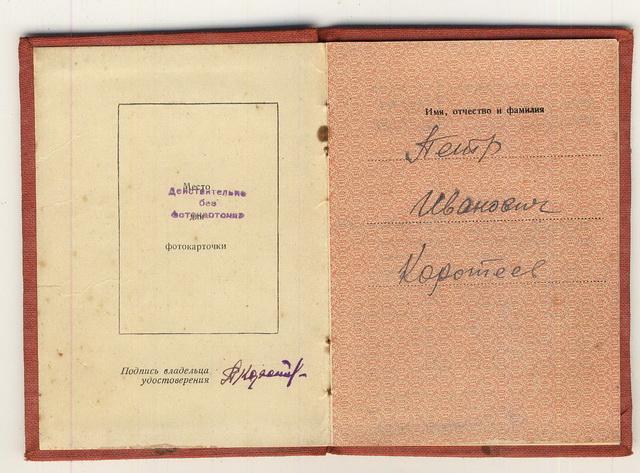 Место
Действительно
без
для
фотокарточки
фотокарточки
Подпись владельца
удостоверения
Имя, отчество и фамилия
Петр
Иванович
Коротеев